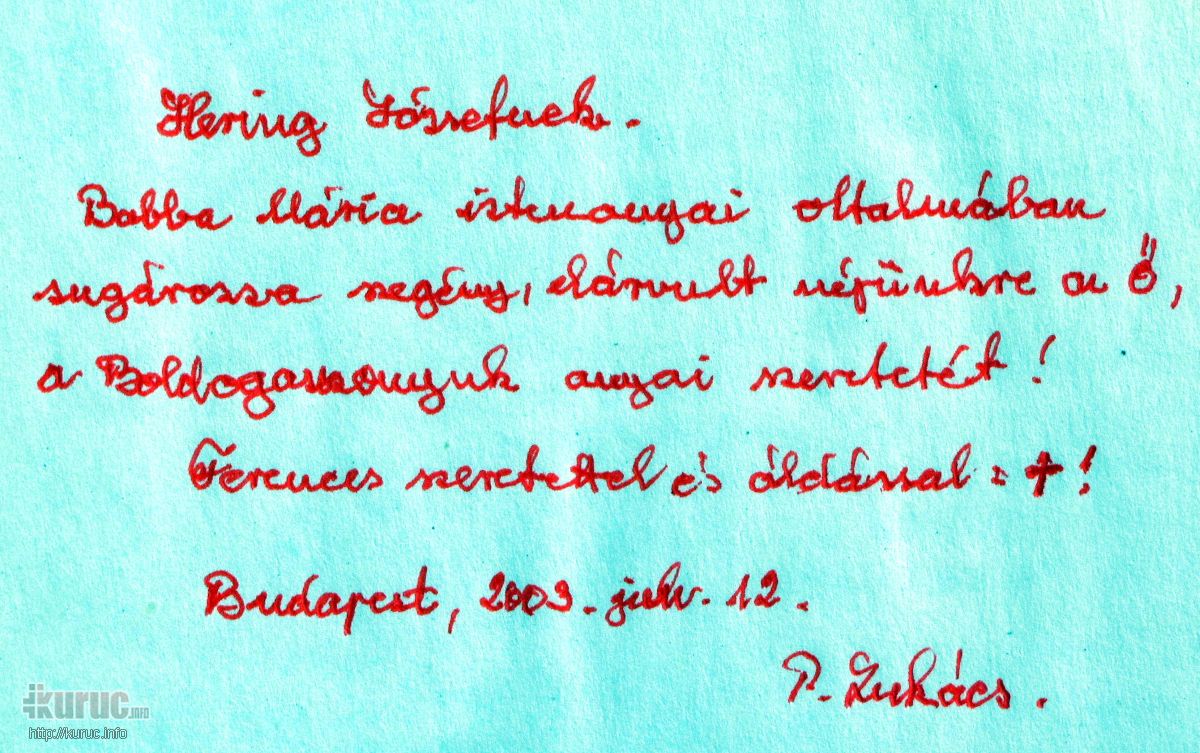 Hering Józsefnek.
Babba Mária istenanyai oltalmában
sugározza szegény, elárvult népünkre az Ő,
a Boldogasszonyuk anyai szeretetét!
Ferences szeretettel és áldással = †!
Budapest, 2003. júli. 12.
P. Lukács.
kuruc.info
http://kuruc.info